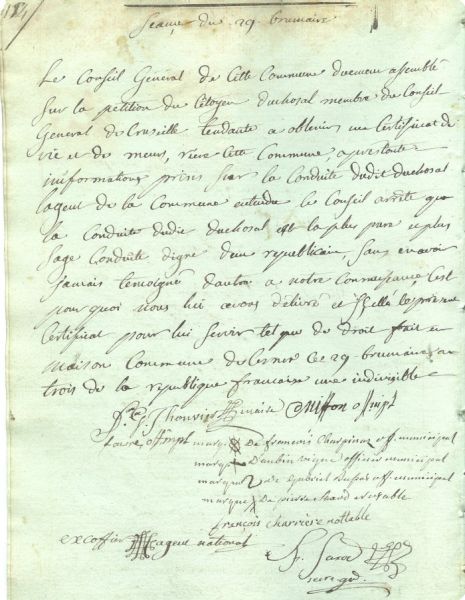 Seance du 29 brumaire
Le Conseil General de Cette Commune duement assemblé
Sur la petition du Citoyen duchosal membre du Conseil
General de Cruseille tendante a obtenir un Certificat de
vie et de meurs, riere Cette Commune, après toute
informations prises Sur la Conduite dudit duchosal
lagent de la Commune entendu le Conseil arrête que
la Conduite dudit duchosal est la plus pure et plus
Sage Conduite digne d'un republicain, sans en avoir
jamais temoigné dautre a notre Connaissance, C'est
pour quoi nous lui avons délivré et le présent
Certificat pour lui Servir tel que de droit fait en
maison Commune de Cernex Ce 29 brumaire an
trois de la republique francaise une indivisible
Thouvier maire off mpl
off mpl marque De francois Charpinaz off. municipal
marque D'aubin vigne officier municipal
marque De Gabriel off municipal
marque De pierre notable
françois Charriere nottable
excoffier agent national